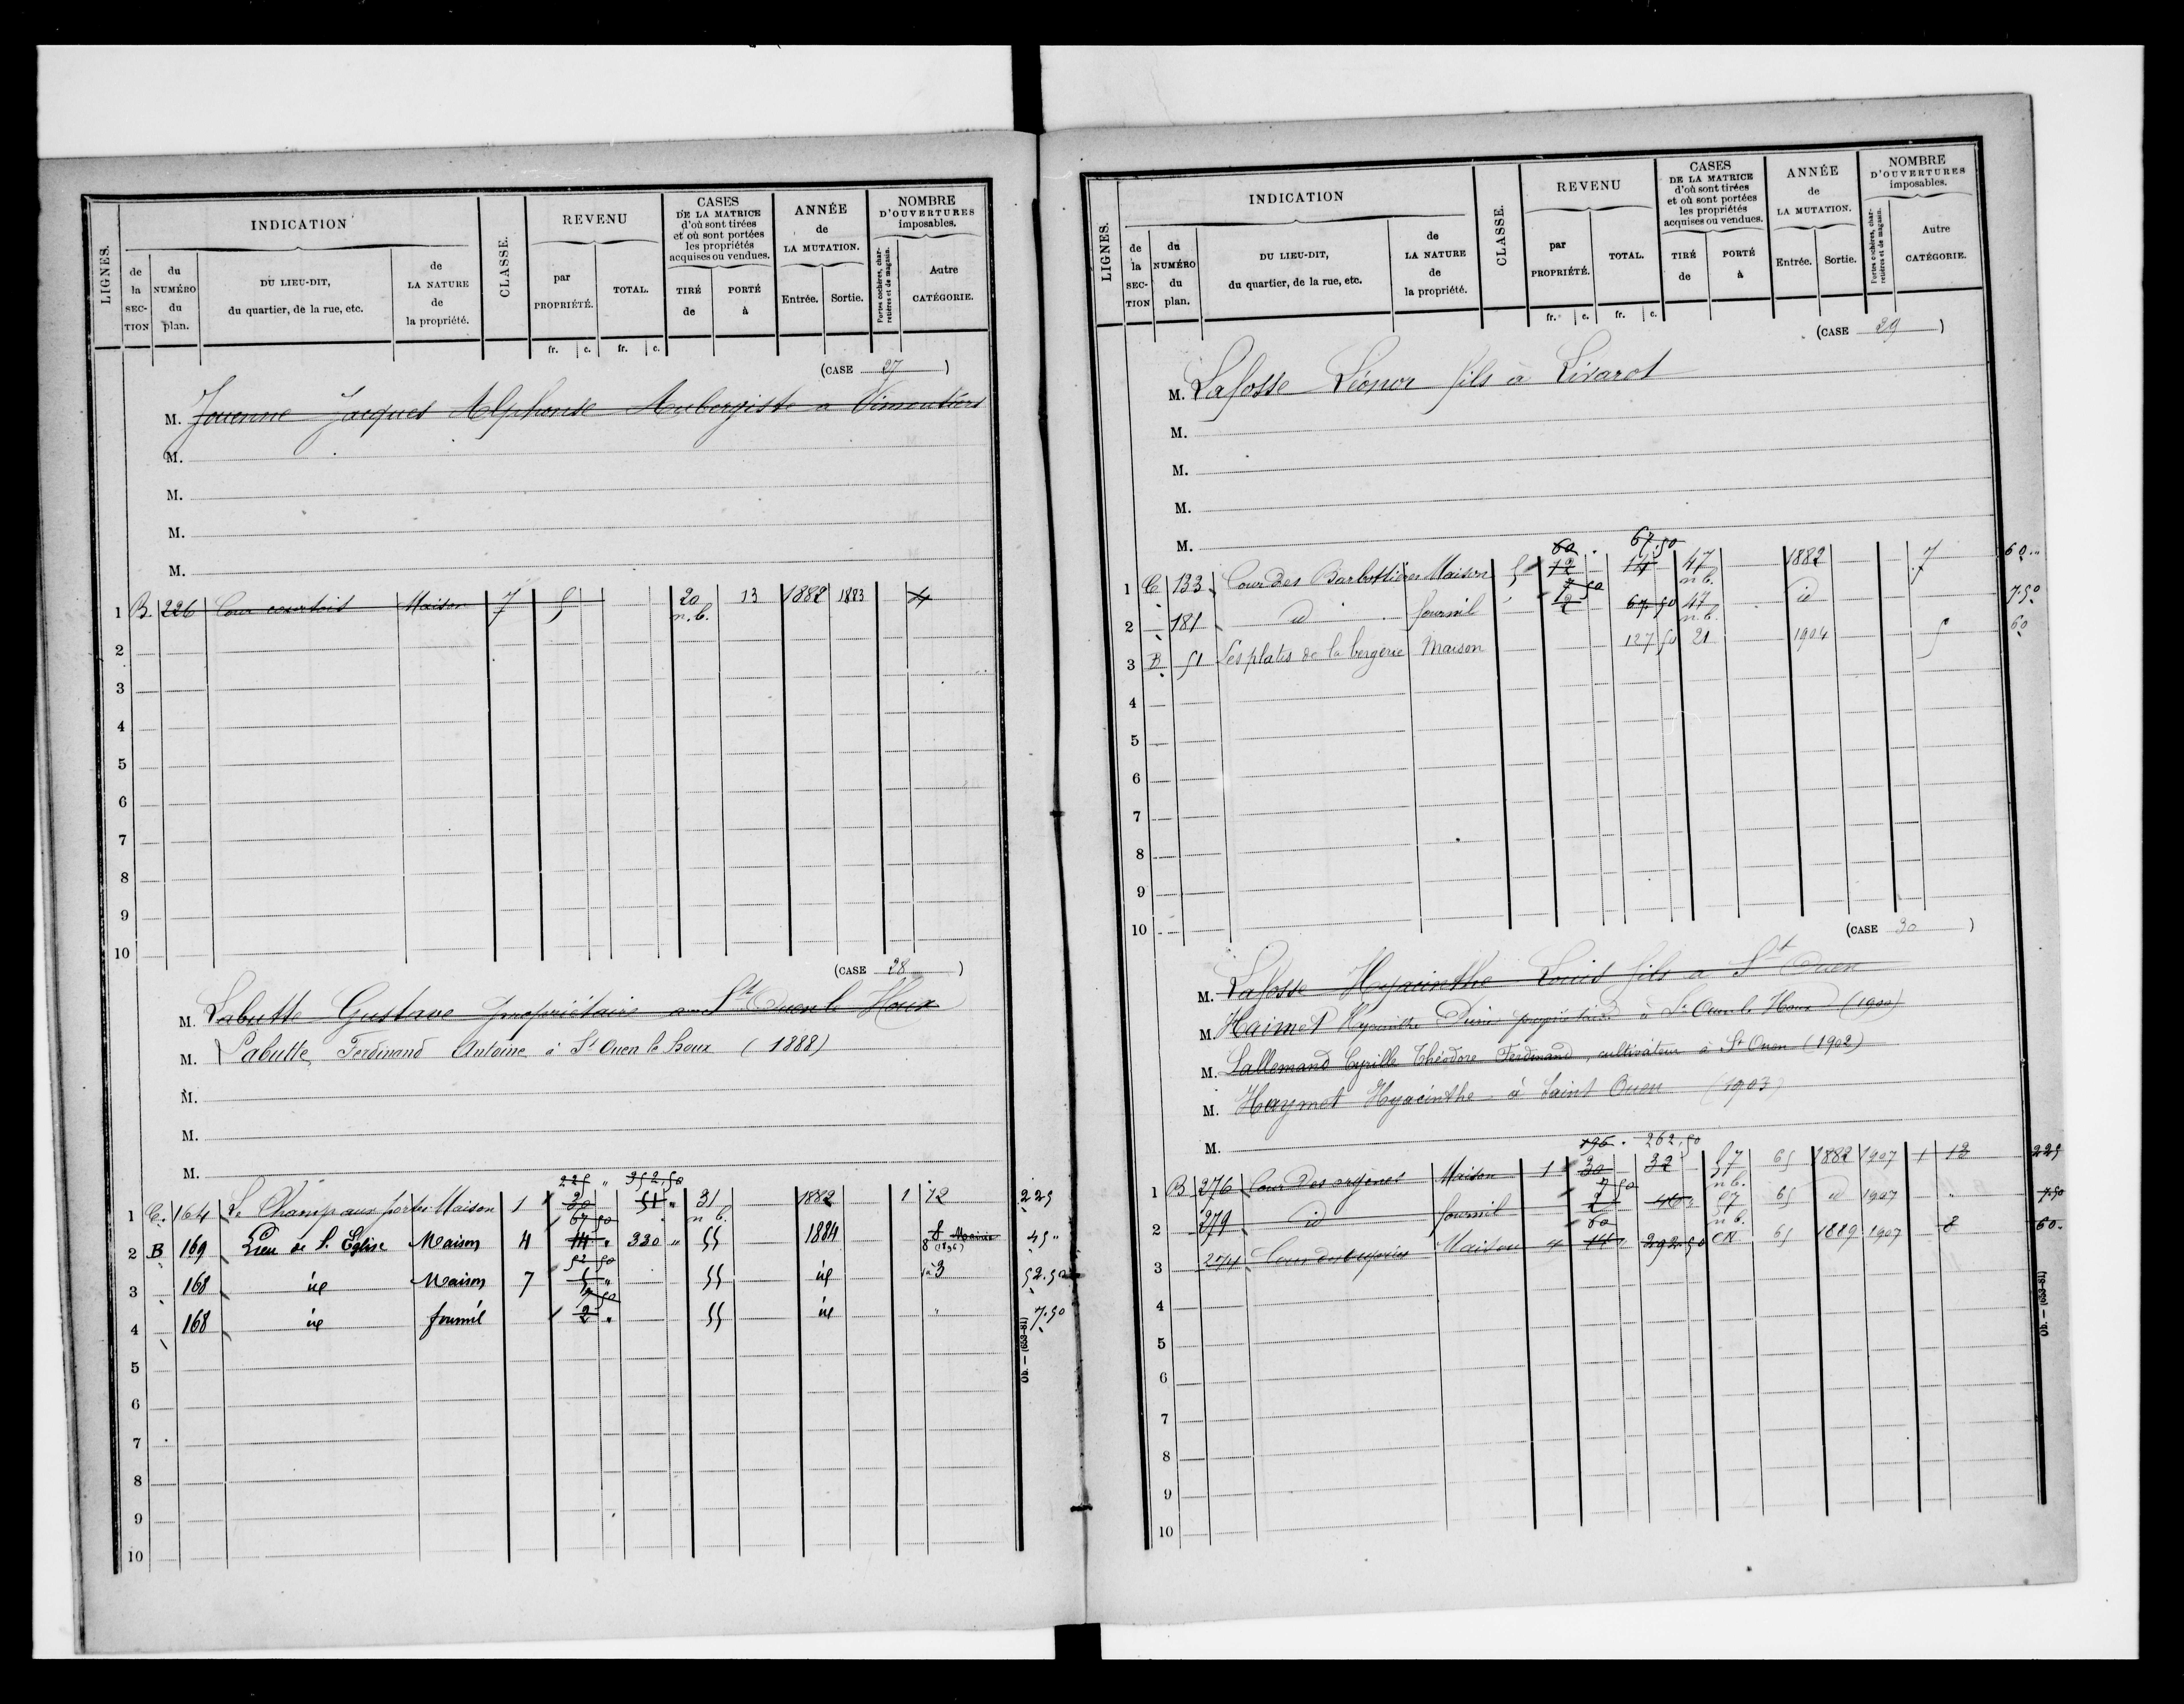 LIGNES.
INDICATION
de la SECTION
du NUMÉRO du plan.
DU LIEU-DIT, du quartier, de la rue, etc.
de LA NATURE de la propriété.
CLASSE.
REVENU
par PROPRIÉTÉ.
TOTAL.
fr. c. fr. c.
CASES DE LA MATRICE d'où sont tirées et où sont portées les propriétés acquises ou vendues.
TIRÉ de
PORTÉ à
ANNÉE de LA MUTATION.
Entrée. Sortie.
NOMBRE D'OUVERTURES imposables.
Portes cochères, charretières et de magasin.
Autre CATÉGORIE.
(CASE 27)
M. Jouenne Jacques Alphonse Aubergiste à Vimoutiers
M.
M.
M.
M.
1 B. 226 Cour courtois Maison 7 5 20 n.b. 13 1882 1883 4
2
3
4
5
6
7
8
9
10
(CASE 28)
M. Labutte Gustave propriétaire à St Ouen le Houx
M. Labutte, Ferdinand Antoine à St Ouen le houx (1888)
M.
M.
M.
225 " 352.50
1 C. 164 Le Champ aux portes Maison 1 30 51 " 31 n.b. 1882 1 12 225
67 50
2 B 169 Lieu de l'Eglise Maison 4 14 " 330 " 55 1884 8 8 (1896) 45 "
52 50
3 168 id Maison 7 5 " 55 id 3 52.50
7 50
4 168 id fournil 2 " 55 id " 7.50
5
6
7
8
9
10
Ob. — (653-81)
LIGNES.
INDICATION
de la SECTION
du NUMÉRO du plan.
DU LIEU-DIT, du quartier, de la rue, etc.
de LA NATURE de la propriété.
CLASSE.
REVENU
par PROPRIÉTÉ.
TOTAL.
fr. c. fr. c.
CASES DE LA MATRICE d'où sont tirées et où sont portées les propriétés acquises ou vendues.
TIRÉ de
PORTÉ à
ANNÉE de LA MUTATION.
Entrée. Sortie.
NOMBRE D'OUVERTURES imposables.
Portes cochères, charretières et de magasin.
Autre CATÉGORIE.
(CASE 29)
M. Lafosse Léonor fils à Livarot
M.
M.
M.
M.
60 . 67.50
1 C 133 Cour des Barbottières Maison 5 12 14 47 n.b. 1882 7 60 "
7 50
2 181 id fournil 2 67.50 47 n.b. id 7.50
3 B 51 Les platis de la bergerie Maison 127 50 21 1904 5 60
4
5
6
7
8
9
10
(CASE 30)
M. Lafosse Hyacinthe Louis fils à St Ouen
M. Haimet Hyacinthe propriétaire à St Ouen le Houx (1900)
M. Lallemand Cyrille Théodore Ferdinand, cultivateur à St Ouen (1902)
M. Haymet Hyacinthe à Saint Ouen (1903)
M.
195 . 262.50
1 B 276 Cour des Maison 1 30 32 57 n.b. 65 1882 1907 1 12 225
7 50
2 279 id fournil 2 46 " 57 n.b. 65 id 1907 " 7.50
60
3 274 Maison 4 14 " 292.50 CN 65 1889 1907 8 60.
4
5
6
7
8
9
10
Ob. — (653-81)